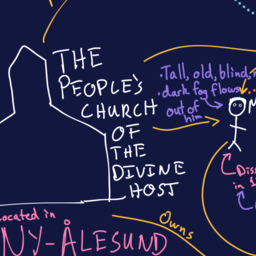 THE
PEOPLE'S
CHURCH
OF
THE
DIVINE
HOST
• Tall, old, blind,
• dark fog flows
out of
him
located in
NY-ÅLESUND
Owns
in